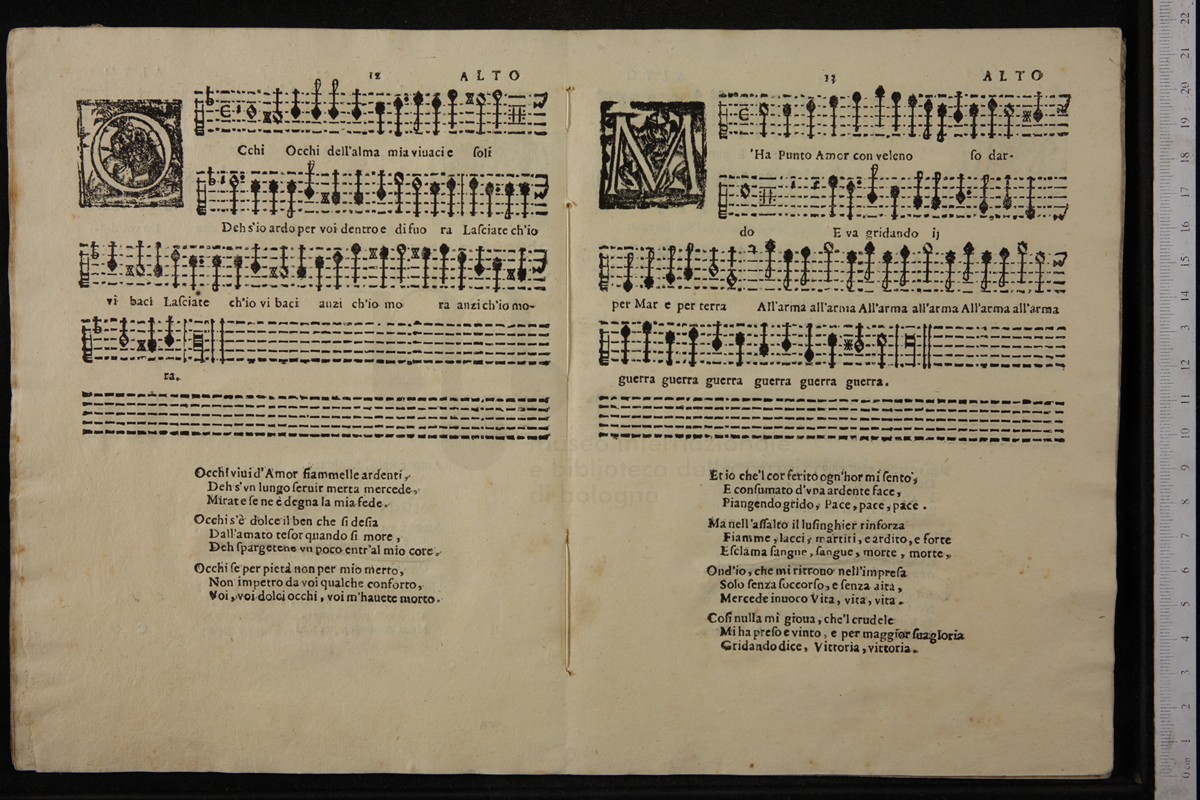 12 ALTO
OCchi Occhi dell'alma mia viuaci e ſoli
Deh s'io ardo per voi dentro e di fuo ra Laſciate ch'io
vi baci Laſciate ch'io vi baci anzi ch'io mo ra anzi ch'io mo-
ra.
Occhi viui d'Amor fiammelle ardenti,
Deh s'vn lungo ſeruir merta mercede,
Mirate ſe ne è degna la mia fede.
Occhi s'è dolce il ben che ſi deſia
Dall'amato teſor quando ſi more,
Deh ſpargetene vn poco entr'al mio core.
Occhi ſe per pietà non per mio merto,
Non impetro da voi qualche conforto,
Voi, voi dolci occhi, voi m'hauete morto.
13 ALTO
M'Ha Punto Amor con veleno ſo dar-
do E va gridando ij
per Mar e per terra All'arma all'arma All'arma all'arma All'arma all'arma
guerra guerra guerra guerra guerra guerra.
Et io che'l cor ferito ogn'hor mi ſento,
E conſumato d'vna ardente face,
Piangendo grido, Pace, pace, pace.
Ma nell'aſſalto il luſinghier rinforza
Fiamme, lacci, martiri, e ardito, e forte
Eſclama ſangue, ſangue, morte, morte,
Ond'io, che mi ritrouo nell'impreſa
Solo ſenza ſoccorſo, e ſenza aita,
Mercede inuoco Vita, vita, vita.
Coſi nulla mi gioua, che'l crudele
Mi ha preſo e vinto, e per maggior ſua gloria
Gridando dice, Vittoria, vittoria.
museo internazionale
e biblioteca de
di bologna
0 cm 1 2 3 4 5 6 7 8 9 10 11 12 13 14 15 16 17 18 19 20 21 22